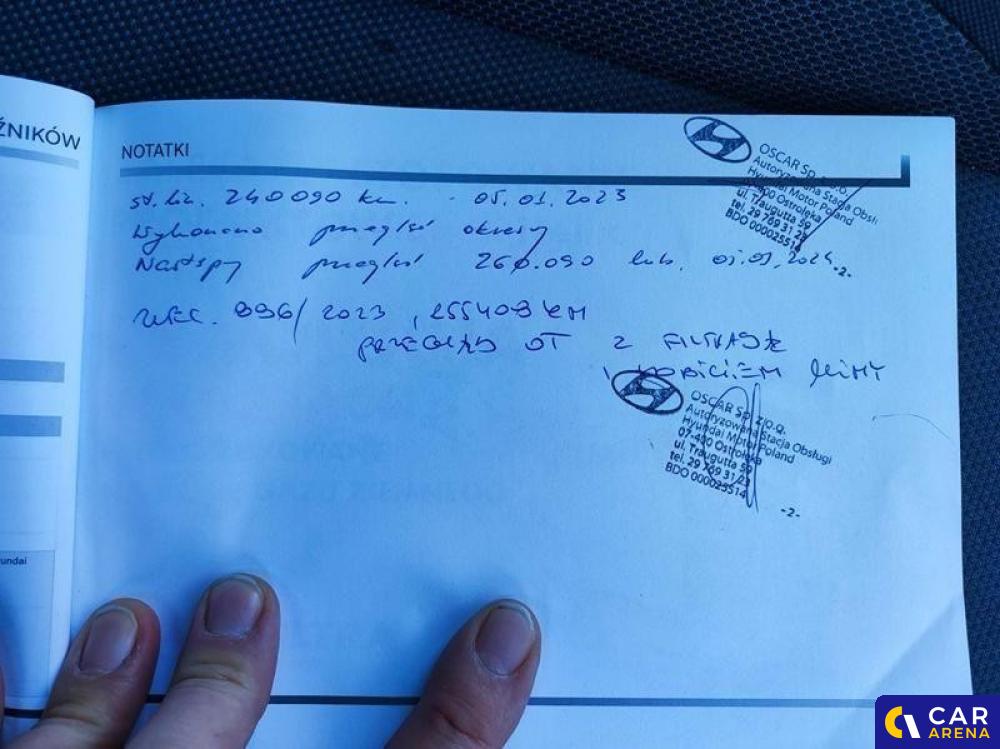 ŹNIKÓW
NOTATKI
OSCAR Sp. z o.o.
Autoryzowana Stacja Obsłu
Hyundai Motor Poland
07-400 Ostrołęka
ul. Traugutta 59
tel. 29 769 31 23
BDO 000025514
-2-
st. lk. 240090 km. - 05.01.2023
Wykonano przegląd okresy
Nastspy przegląd 260.090 lub. 05.01.2024
996/2023, 255409 KM
PRZEGLĄD OT Z FILTRAMI
I NABICIEM KLIMY
OSCAR Sp. z o.o.
Autoryzowana Stacja Obsługi
Hyundai Motor Poland
07-400 Ostrołęka
ul. Traugutta 59
tel. 29 769 31 23
BDO 000025514
-2-
undai
CAR
ARENA